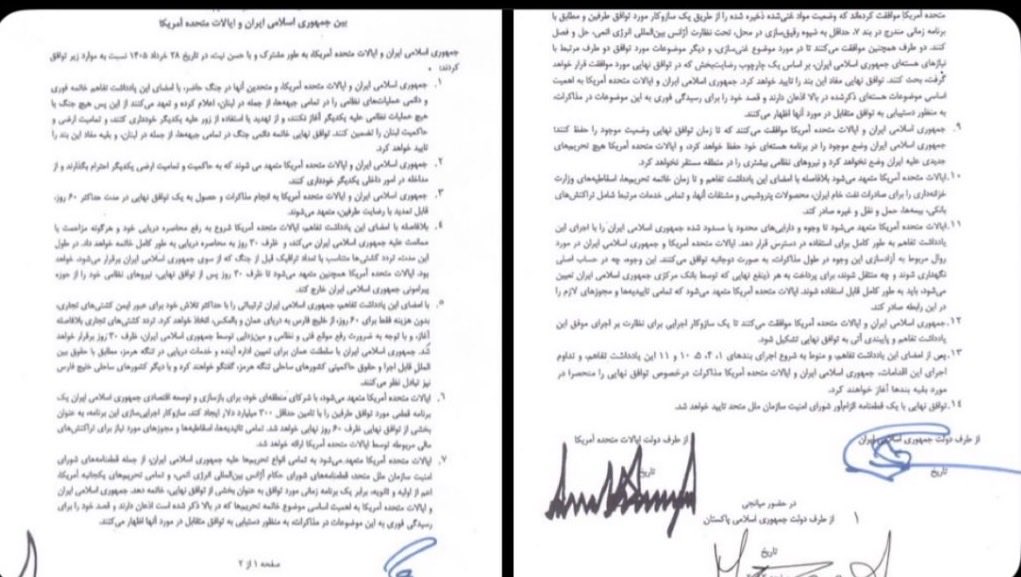 بین جمهوری اسلامی ایران و ایالات متحده آمریکا
جمهوری اسلامی ایران و ایالات متحده آمریکا، به طور مشترک و با حسن نیت، در تاریخ ۲۸ خرداد ۱۴۰۵ نسبت به موارد زیر توافق
کردند:
۱. جمهوری اسلامی ایران و ایالات متحده آمریکا، و متحدین آنها در جنگ حاضر، با امضای این یادداشت تفاهم خاتمه فوری
و دائمی عملیات‌های نظامی را در تمامی جبهه‌ها، از جمله در لبنان، اعلام کرده و تعهد می‌کنند از این پس هیچ جنگ یا
هیچ عملیات نظامی علیه یکدیگر آغاز نکنند، و از تهدید یا استفاده از زور علیه یکدیگر خودداری کنند، و تمامیت ارضی و
حاکمیت لبنان را تضمین کنند. توافق نهایی خاتمه دائمی جنگ در تمامی جبهه‌ها، از جمله در لبنان، و بقیه مفاد این بند را
تایید خواهد کرد.
۲. جمهوری اسلامی ایران و ایالات متحده آمریکا متعهد می شوند که به حاکمیت و تمامیت ارضی یکدیگر احترام بگذارند و از
مداخله در امور داخلی یکدیگر خودداری کنند.
۳. جمهوری اسلامی ایران و ایالات متحده آمریکا به انجام مذاکرات و حصول به یک توافق نهایی در مدت حداکثر ۶۰ روز،
قابل تمدید با رضایت طرفین، متعهد می‌شوند.
۴. بلافاصله با امضای این یادداشت تفاهم، ایالات متحده آمریکا شروع به رفع محاصره دریایی خود و هرگونه مزاحمت یا
ممانعت علیه جمهوری اسلامی ایران می‌کند، و ظرف ۳۰ روز به محاصره دریایی به طور کامل خاتمه خواهد داد. در طول
این مدت، تردد کشتی‌ها متناسب با تعداد ترافیک قبل از جنگ که از سوی جمهوری اسلامی ایران برقرار می‌شود، خواهد
بود. ایالات متحده آمریکا همچنین متعهد می‌شود تا ظرف ۳۰ روز پس از توافق نهایی، نیروهای نظامی خود را از حوزه
پیرامونی جمهوری اسلامی ایران خارج کند.
۵. با امضای این یادداشت تفاهم، جمهوری اسلامی ایران ترتیباتی را با حداکثر تلاش خود برای عبور ایمن کشتی‌های تجاری،
بدون هزینه فقط برای ۶۰ روز، از خلیج فارس به دریای عمان و بالعکس، اتخاذ خواهد کرد. تردد کشتی‌های تجاری بلافاصله
آغاز، و با توجه به ضرورت رفع موانع فنی و نظامی و مین‌زدایی توسط جمهوری اسلامی ایران، ظرف ۳۰ روز برقرار خواهد
شد. جمهوری اسلامی ایران با سلطنت عمان برای تعیین اداره آینده و خدمات دریایی در تنگه هرمز، مطابق با حقوق بین
الملل قابل اجرا و حقوق حاکمیتی کشورهای ساحلی تنگه هرمز، گفتگو خواهند کرد و با دیگر کشورهای ساحلی خلیج فارس
نیز تبادل نظر می‌کنند.
۶. ایالات متحده آمریکا متعهد می‌شود، با شرکای منطقه‌ای خود، برای بازسازی و توسعه اقتصادی جمهوری اسلامی ایران یک
برنامه قطعی مورد توافق طرفین را با تامین حداقل ۳۰۰ میلیارد دلار ایجاد کند. سازوکار اجرایی‌سازی این برنامه، به عنوان
بخشی از توافق نهایی ظرف ۶۰ روز نهایی خواهد شد. تمامی تائیدیه‌ها، اسقاطیه‌ها و مجوزهای مورد نیاز برای تراکنش‌های
مالی مربوطه توسط ایالات متحده آمریکا ارائه خواهد شد.
۷. ایالات متحده آمریکا متعهد می‌شود به تمامی انواع تحریم‌ها علیه جمهوری اسلامی ایران، از جمله قطعنامه‌های شورای
امنیت سازمان ملل متحد، قطعنامه‌های شورای حکام آژانس بین‌المللی انرژی اتمی، و تمامی تحریم‌های یکجانبه آمریکا،
اعم از اولیه و ثانویه، برابر یک برنامه زمانی مورد توافق به عنوان بخشی از توافق نهایی، خاتمه دهد. جمهوری اسلامی ایران
و ایالات متحده آمریکا به اهمیت اساسی موضوع خاتمه تحریم‌ها که در بالا ذکر شده است اذعان دارند و قصد خود را برای
رسیدگی فوری به این موضوعات در مذاکرات، به منظور دستیابی به توافق متقابل در مورد آنها اظهار می‌کنند.
صفحه ۱ از ۲
متحده آمریکا موافقت کرده‌اند که وضعیت مواد غنی‌شده ذخیره شده را از طریق یک سازوکار مورد توافق طرفین و مطابق با
برنامه زمانی مندرج در بند ۷، حداقل به شیوه رقیق‌سازی در محل، تحت نظارت آژانس بین‌المللی انرژی اتمی، حل و فصل
کنند. دو طرف همچنین موافقت می‌کنند تا در مورد موضوع غنی‌سازی، و دیگر موضوعات مورد توافق دو طرف مرتبط با
نیازهای هسته‌ای جمهوری اسلامی ایران، بر اساس یک چارچوب رضایت‌بخش که در توافق نهایی مورد موافقت قرار خواهد
گرفت، بحث کنند. توافق نهایی مفاد این بند را تایید خواهد کرد. جمهوری اسلامی ایران و ایالات متحده آمریکا به اهمیت
اساسی موضوعات هسته‌ای ذکرشده در بالا اذعان دارند و قصد خود را برای رسیدگی فوری به این موضوعات در مذاکرات،
به منظور دستیابی به توافق متقابل در مورد آنها اظهار می‌کنند.
۹. جمهوری اسلامی ایران و ایالات متحده آمریکا موافقت می‌کنند که تا زمان توافق نهایی وضعیت موجود را حفظ کنند؛
جمهوری اسلامی ایران وضع موجود را در برنامه هسته‌ای خود حفظ خواهد کرد، و ایالات متحده آمریکا هیچ تحریم‌های
جدیدی علیه ایران وضع نخواهد کرد و نیروهای نظامی بیشتری را در منطقه مستقر نخواهد کرد.
۱۰. ایالات متحده آمریکا متعهد می‌شود بلافاصله با امضای این یادداشت تفاهم و تا زمان خاتمه تحریم‌ها، اسقاطیه‌های وزارت
خزانه‌داری را برای صادرات نفت خام ایران، محصولات پتروشیمی و مشتقات آنها، و تمامی خدمات مرتبط شامل تراکنش‌های
بانکی، بیمه‌ها، حمل و نقل و غیره صادر کند.
۱۱. ایالات متحده آمریکا متعهد می‌شود تا وجوه و دارایی‌های محدود یا مسدود شده جمهوری اسلامی ایران را با اجرای این
یادداشت تفاهم به طور کامل برای استفاده در دسترس قرار دهد. ایالات متحده آمریکا و جمهوری اسلامی ایران در مورد
روال مربوط به آزادسازی این وجوه در طول مذاکرات، به صورت دوجانبه توافق می‌کنند. این وجوه، چه در حساب اصلی
نگهداری شوند و چه منتقل شوند، برای پرداخت به هر ذینفع نهایی که توسط بانک مرکزی جمهوری اسلامی ایران تعیین
می‌شود، باید به طور کامل قابل استفاده شوند. ایالات متحده آمریکا متعهد می‌شود که تمامی تاییدیه‌ها و مجوزهای لازم را
در این رابطه صادر کند.
۱۲. جمهوری اسلامی ایران و ایالات متحده آمریکا موافقت می‌کنند تا یک سازوکار اجرایی برای نظارت بر اجرای موفق این
یادداشت تفاهم و پایبندی آتی به توافق نهایی تشکیل شود.
۱۳. پس از امضای این یادداشت تفاهم، و منوط به شروع اجرای بندهای ۱، ۴، ۵، ۱۰ و ۱۱ این یادداشت تفاهم، و تداوم
اجرای این اقدامات، جمهوری اسلامی ایران و ایالات متحده آمریکا مذاکرات درخصوص توافق نهایی را منحصرا در
مورد بقیه بندها آغاز خواهند کرد.
۱۴. توافق نهایی با یک قطعنامه الزام‌آور شورای امنیت سازمان ملل متحد تایید خواهد شد.
از طرف دولت جمهوری اسلامی ایران
از طرف دولت ایالات متحده آمریکا
تاریخ
تاریخ
در حضور میانجی
از طرف دولت جمهوری اسلامی پاکستان
تاریخ